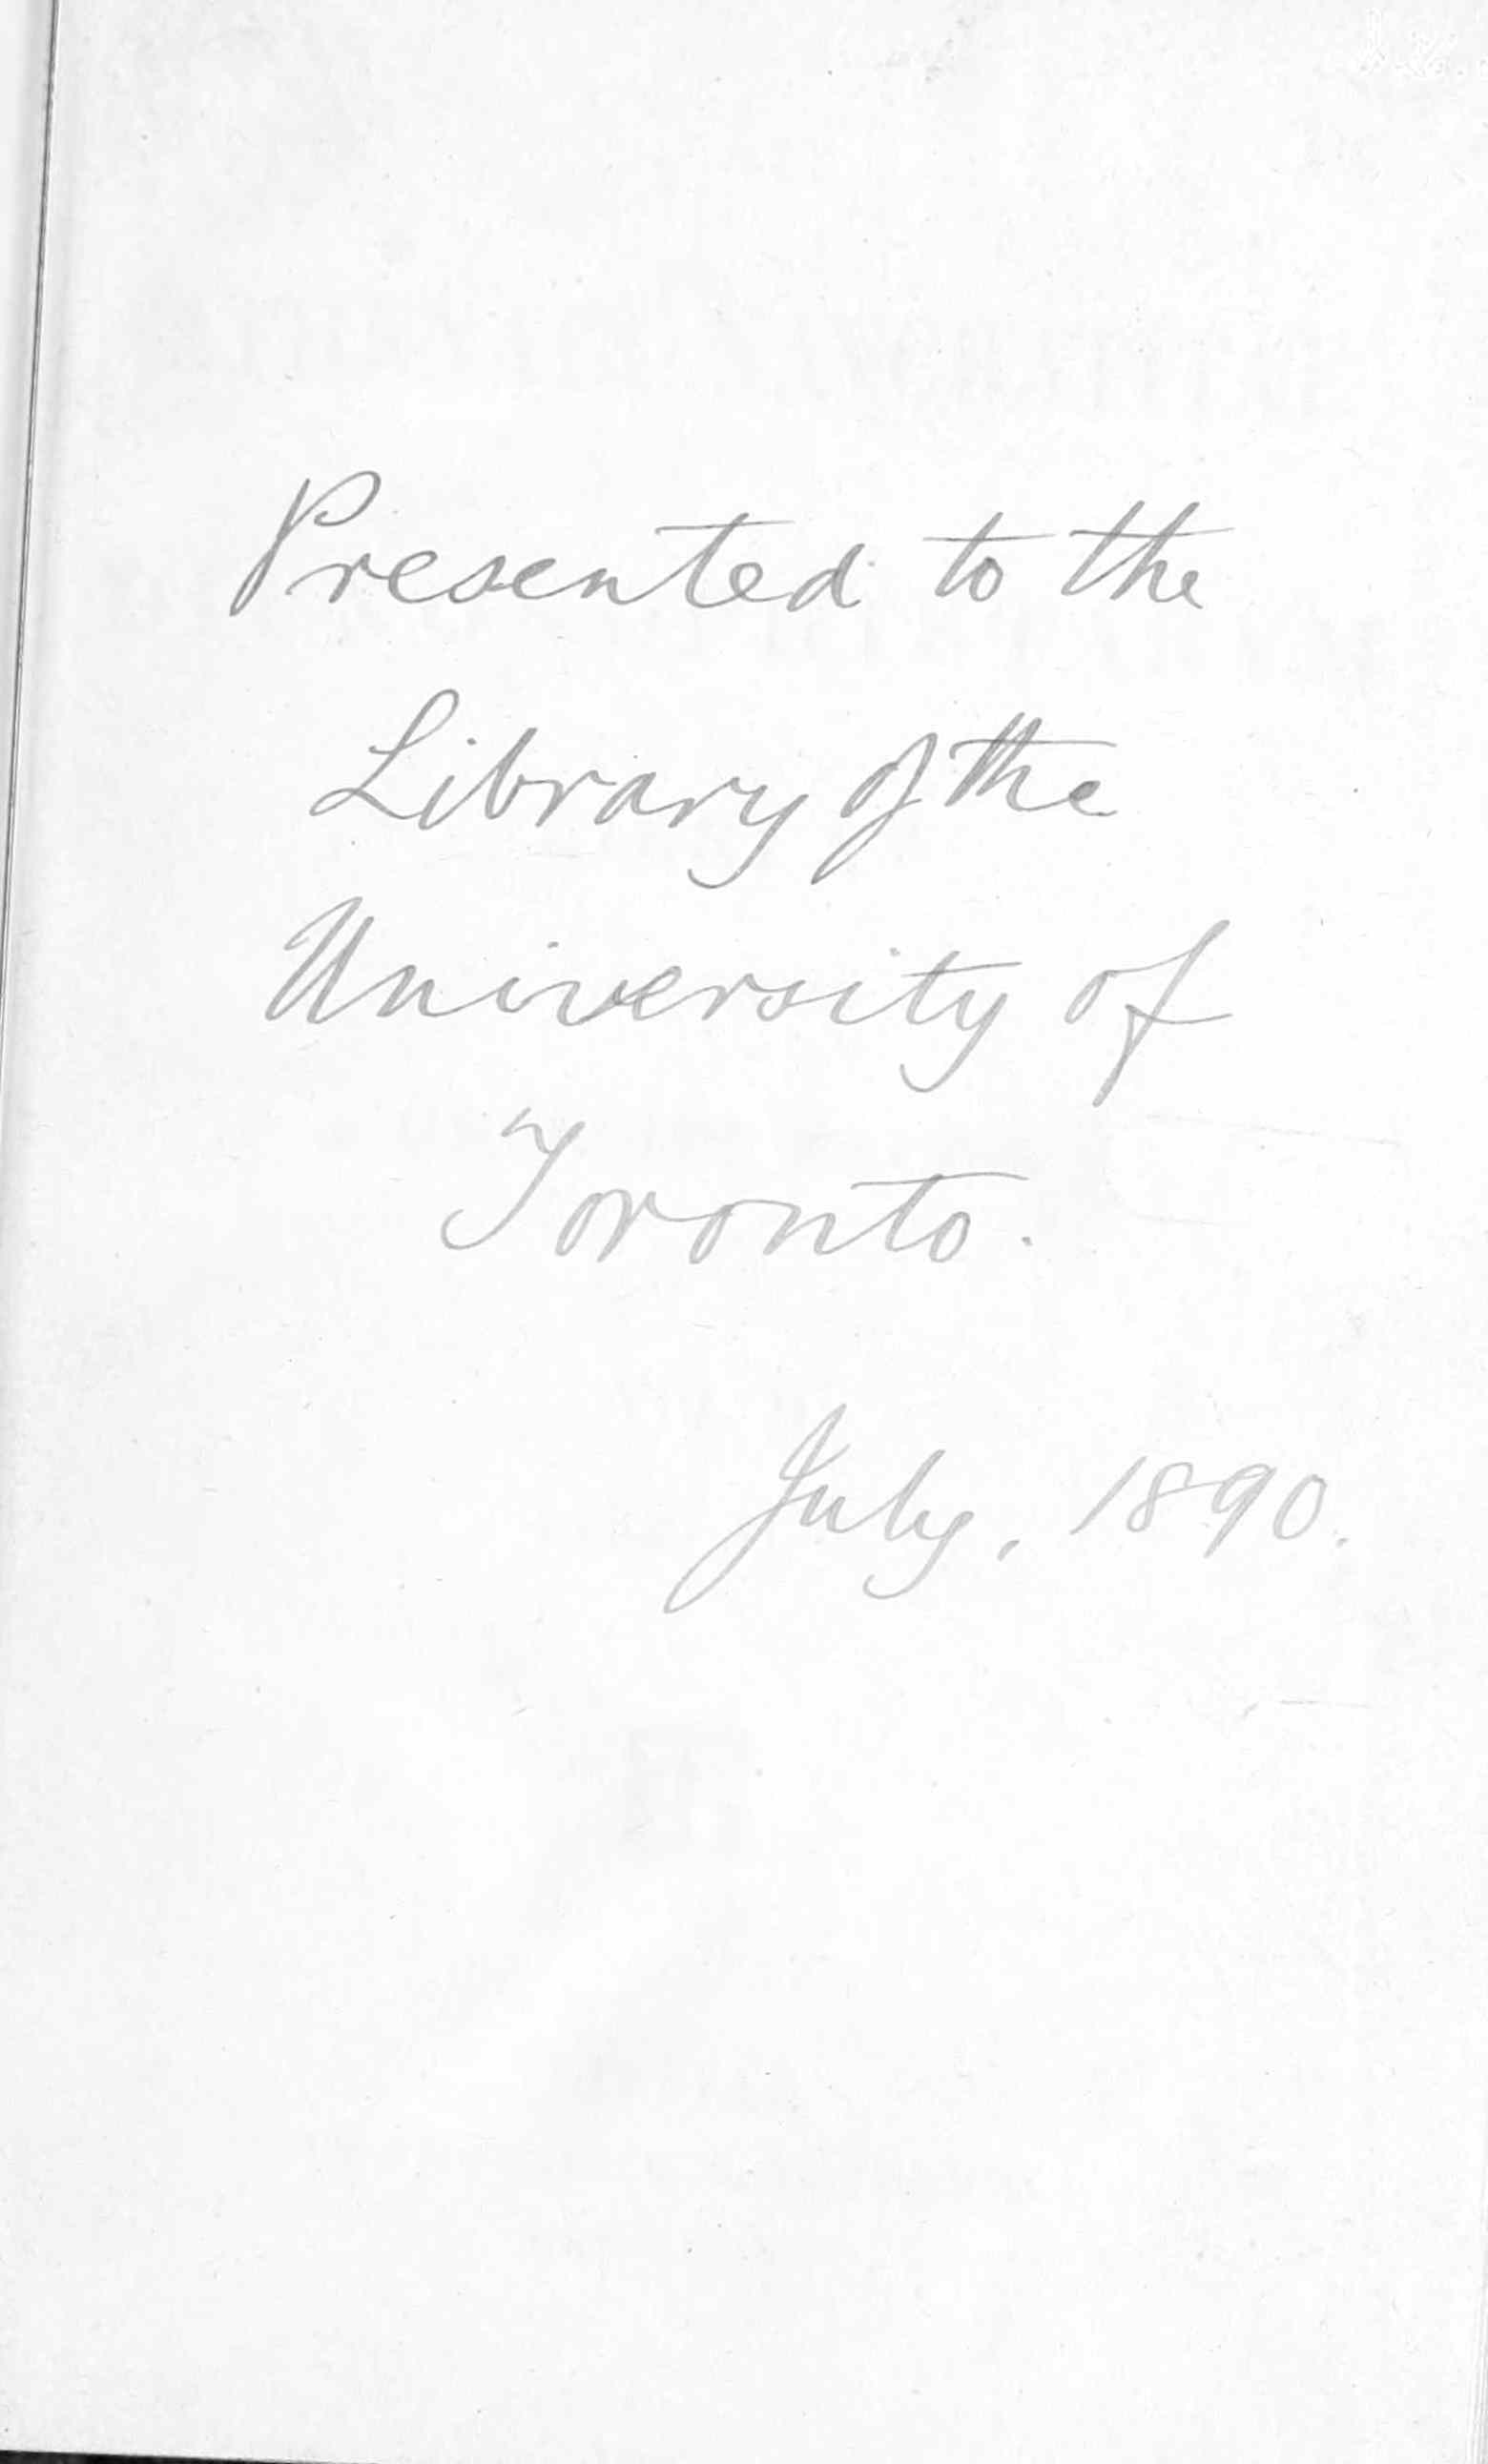 Presented to the
Library of the
University of
Toronto.
July, 1890.